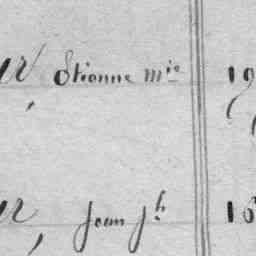 Etienne mie 19
Jean Jh 16